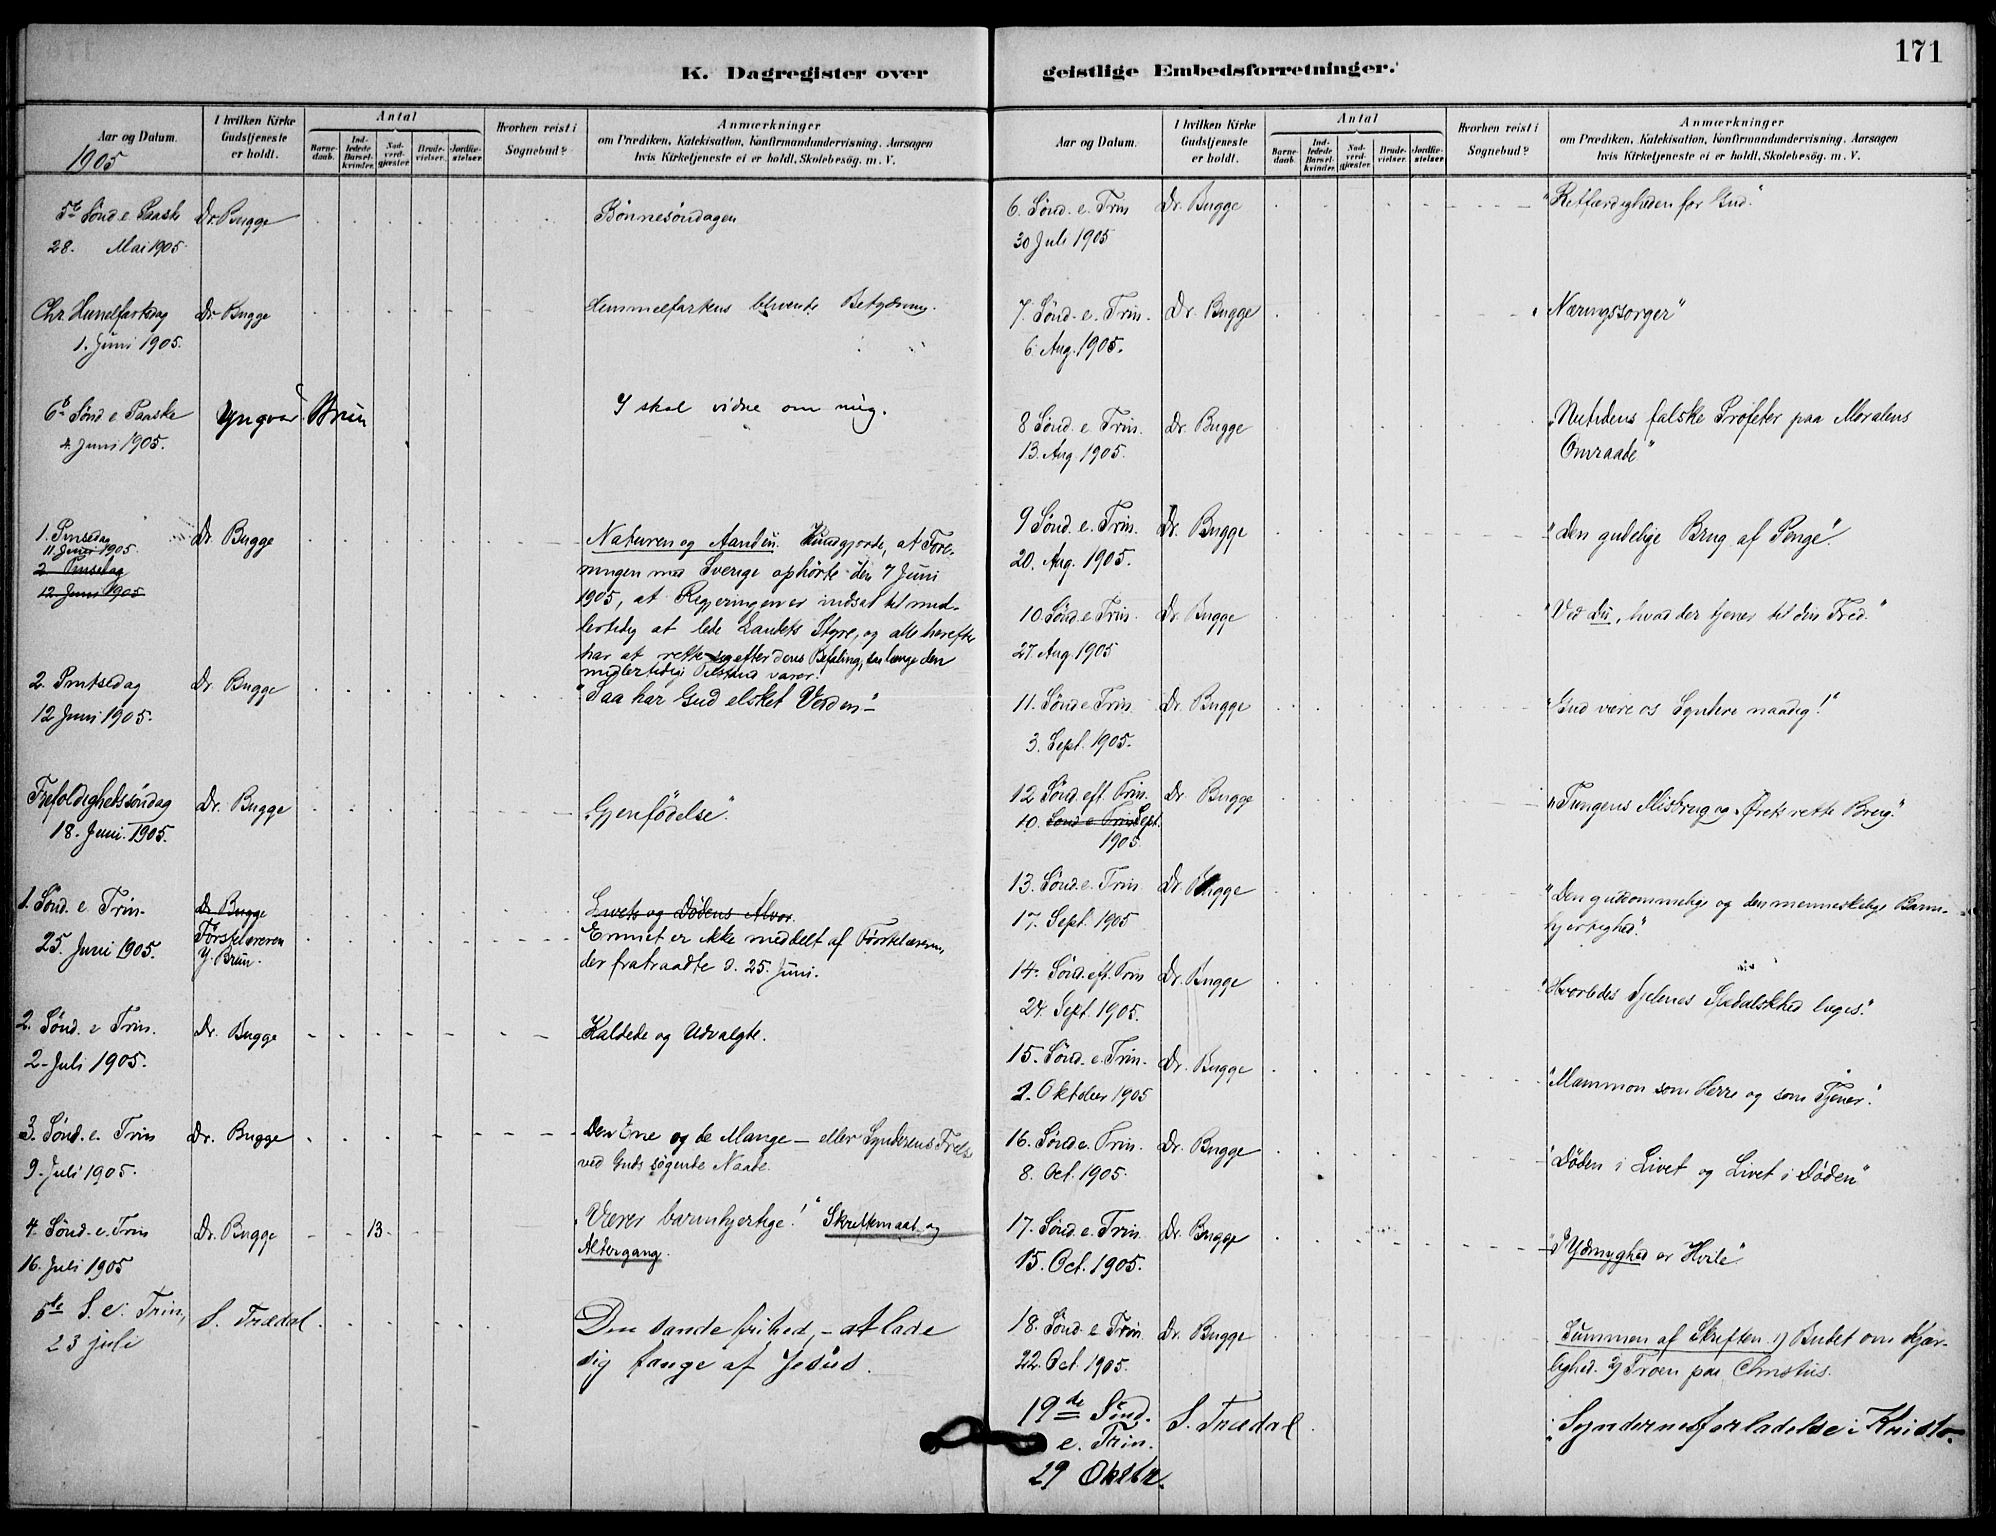 171
K. Dagregister over
geistlige Embedsforretninger.
Aar og Datum.
1905
I hvilken Kirke
Gudstjeneste
er holdt.
Antal
Barne-
daab.
Ind-
ledede
Barsel-
kvinder.
Nad-
verd-
gjester.
Brude-
vielser.
Jordfæ-
stelser.
Hvorhen reist i
Sognebud?
Anmærkninger
om Prædiken, Katekisation, Konfirmandundervisning. Aarsagen
hvis Kirketjeneste ei er holdt, Skolebesøg. m. V.
5te Sønd. e. Paaske Dr. Bugge Bønnesöndagen
28. Mai 1905.
Chr. Himelfartsdag Dr. Bugge Himmelfartens blivende Betydning.
1. Juni 1905.
6te Sønd e Paaske Yngvar Brun I skal vidne om mig.
4. Juni 1905.
1. Pinsedag Dr. Bugge Naturen og Aanden. Kundgjorde, at Fore-
11. Juni 1905.
ningen med Sverige ophörte den 7 Juni
2 Pinsedag
12. Juni 1905
1905, at Regjeringen er indsat til mid-
lertidig at lede Landets Styre, og alle herefter
har at rette sig efter deres Befaling, saa længe den
midlertidige Tilstand varer.
2. Pintsedag Dr. Bugge "Saa har Gud elsket Verden"-
12 Juni 1905.
Trefoldighedssöndag Dr. Bugge Gjenfödelse".
18. Juni. 1905.
1. Sønd. e Trin. Dr. Bugge Livets og Dödens Alvor.
Førstelæreren Emnet er ikke meddelt af Förstelæreren,
25. Juni 1905. Y. Brun. der fratraadte d. 25. Juni.
2. Sønd. e Trin. Dr. Bugge Kaldede og Udvalgte.
2. Juli 1905.
3. Sønd. e. Trin Dr. Bugge Den Ene og de Mange - eller Synderens Frelse
9. Juli 1905. ved Guds søgende Naade.
4. Sønd. e. Trin Dr. Bugge 13 "Værer barmhjertige!" Skriftemaal og
16. Juli 1905 Altergang.
5te S. e. Trin, S. Trædal. Den sande frihed, - at lade
23 juli sig fange af Jesus.
Aar og Datum.
I hvilken Kirke
Gudstjeneste
er holdt.
Antal
Barne-
daab.
Ind-
ledede
Barsel-
kvinder.
Nad-
verd-
gjester.
Brude-
vielser.
Jordfæ-
stelser.
Hvorhen reist i
Sognebud?
Anmærkninger
om Prædiken, Katekisation, Konfirmandundervisning. Aarsagen
hvis Kirketjeneste ei er holdt, Skolebesøg. m. V.
6. Sønd. e. Trin Dr. Bugge "Retfærdigheden for Gud."
30 Juli 1905
7. Sønd. e. Trin. Dr. Bugge "Næringssorger"
6. Aug. 1905.
8 Sønd. e. Trin. Dr. Bugge "Nutidens falske Profeter paa Moralens
13. Aug. 1905. Omraade"
9 Sønd. e. Trin. Dr. Bugge "Den gudelige Brug af Penge".
20. Aug. 1905.
10. Sønd. e. Trin. Dr. Bugge "Ved Du, hvad der tjener til din Fred."
27. Aug. 1905
11. Sønd e Trin. Dr. Bugge "Gud være os Syndere naadig!"
3. Sept. 1905.
12 Sønd. eft. Trin. Dr. Bugge "Tungens Misbrug og Ørets rette Brug."
10. Sønd. e. Trin Sept.
1905.
13. Sønd. e. Trin Dr. Bugge "Den guddommelige og den menneskelige Barm-
17. Sept. 1905 hjertighed".
14. Sønd. eft. Trin Dr. Bugge "Hvorledes Sjelenes Spedalskhed læges".
24. Sept. 1905.
15. Sønd. e. Trin. Dr. Bugge "Mammon som Herre og som Tjener."
2. Oktober 1905
16. Sønd e. Trin. Dr. Bugge "Döden i Livet og Livet i Döden"
8. Oct. 1905.
17. Sønd. e. Trin. Dr. Bugge "I Ydmyghed er Hvile"
15. Oct. 1905.
18. Sønd. e. Trin. Dr. Bugge Summen af Skriften 1) Budet om Kjær-
22. Oct. 1905. lighed. 2) Troen paa Christus.
19de Sönd. S. Trædal "Syndernes forladelse i Kristo.
e. Trin.
29 Oktbr.